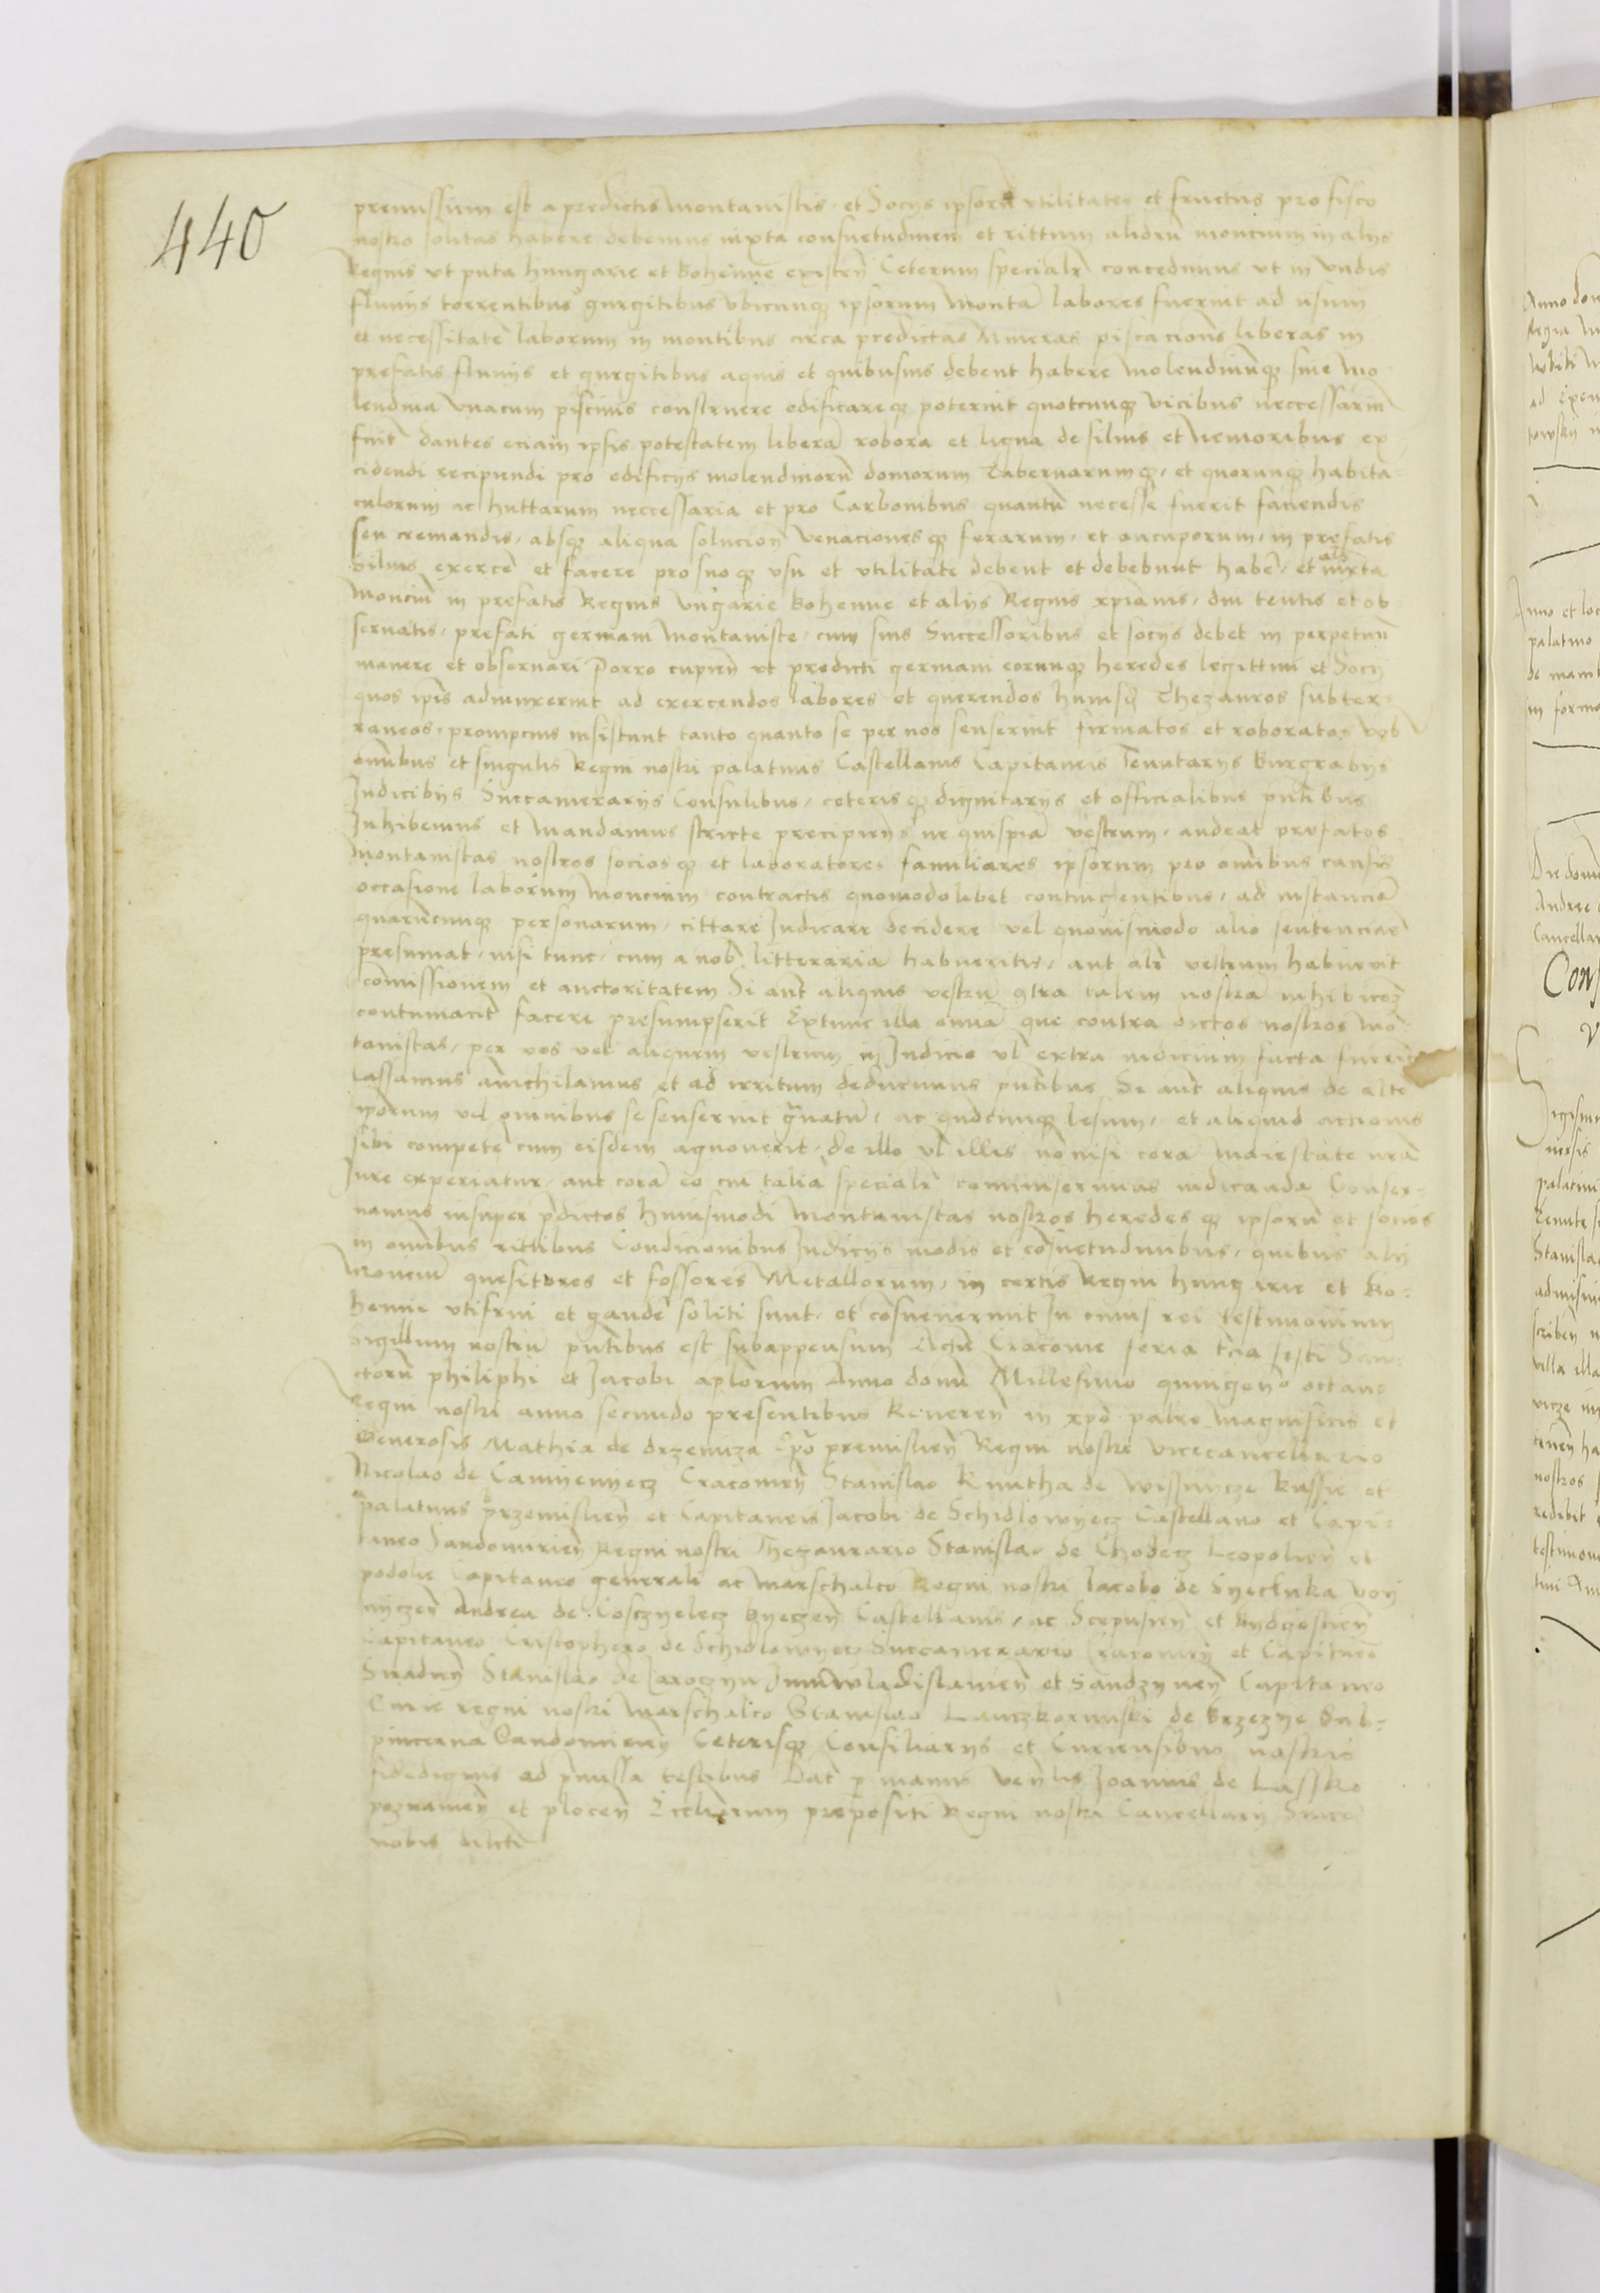 440
premissum est a predictis montanistis et Socijs ipsorū utilitates et fructus pro fisco
nostro solitas habere debemus iuxta consuetudinem et rittum aliorū moncium in alijs
Regnis ut puta hungarie et bohemie existen̄ Ceterum specialr̄ concedimus ut in undis
fluuijs torrentibus gurgitibus ubicunqꝫ ipsorum montā labores fuerint ad usum
et necessitatē laborum in montibus circa predictas Mineras piscacionēs liberas in
prefatis fluuijs et gurgitibus aquis et quibusuis debent habere molendinūqꝫ siue mo
lendina unacum piscinis construere edificareqꝫ poterint quotcunqꝫ vicibus neccessariū
fuit dantes eciam ipsis potestatem liberā robora et ligna de siluis et nemoribus ex
cidendi recipiendi pro edificijs molendinorū domorum Tabernarumqꝫ, et quorunqꝫ habita
culorum ac huttarum neccessaria et pro Carbonibus quantū necesse fuerit faciendis
seu cremandis, absqꝫ aliqua solucion̄ venacionesqꝫ ferarum, et aucuporum, in prefatis
Siluis exercē et facere pro suoqꝫ usu et utilitate debent et debebunt habē, et iuxta
Monciū in prefatis Regnis ungarie bohemie et alijs Regnis xpianis, diu tentis et ob
seruatis, prefati germani montaniste, cum suis Successoribus et socijs debēt in perpetuū
manere et obseruari Porro cupien̄ ut predicti germani eorunqꝫ heredes legittimi et Socij
quos ipīs adiunxerint ad exercendos labores et querendos huiusꝫ Thezauros subter
raneos, prompcius insistunt tanto quanto se per nos senserint firmatos et roboratos vob
omībus et singulis Regni nostri palatinis Castellanis Capitaneis Tenutarijs burgrabijs
Judicibus Succamerarijs Consulibus, ceterisqꝫ dignitarijs et officialibus pn̄tibus
Inhibemus et mandamus stricte precipien̄ ne quispiā vestrum, audeat prefatos
montanistas nostros sociosqꝫ et laboratores familiares ipsorum pro omībus causis
occasione laborum moncium contractis quomodolibet contingentibus, ad instanciā
quarūcunqꝫ personarum, cittare Judicare decidere vel quouismodo alio sentenciare
presumat, nisi tunc, cum a nob litterariā habueritis, aut alr̄ vestrum habuerit
comissionem et auctoritatem Si aut̄ aliquis vestrū ꝯtra talem nostrā inhibicoꝫ
contumacit̄ facere presumpserit Extunc illa omīa que contra dictos nostros mō
tanistas, per vos vel aliquem vestrum in Judicio vl̄ extra iudicium facta fuerint
Cassamus anichilamus et ad irritum deducimus pn̄tibus Si aut̄ aliquis de
ip̄orum vel omnibus se senserint grauatū, ac quocunqꝫ lesum, et aliquid actionis
sibi competē cum eisdem agnouerit, de illo vl̄ illis nō nisi corā maiestate nrā
Jure experiatur, aut corā eo cui talia specialr̄ commiserimus iudicanda Conser-
uamus insuper p̄dictos huiusmodi montanistas nostros heredesqꝫ ipsorū et socios
in omībus rittibus Condicionibus Judicijs modis et cōsuetudinibus, quibus alij
Monciū quesitores et fossores Metallorum, in certis Regni hungarie et bo-
hemie utifrui et gaudē soliti sunt, et cōsueuerunt In cuius rei testimonium
Sigillum nostrū pn̄tibus est subappensum Actū Cracouie feria tc̄ia festi San
ctorū philiphi et Jacobi aplorum Anno domī Millesimo quingen̄º octauo
Regni nostri anno secundo presentibus Reueren̄ in xp̄o patre magnificis et
Generosis Mathia de drzewiza Ep̄o premislien̄ Regni nostri vicecancellario
Nicolao de Camyenyecz Cracouien̄ Stanislao Kmitha de wissnicze Russie et
palatinis przemislien̄ et Capitaneis Jacobi de Schidlowyecz Castellano et Capi-
taneo Sandomirien̄ Regni nostri Thezaurario Stanislao de Chodecz Leopolien̄ et
podolie Capitaneo generali ac marschalco Regni nostri Jacobo de Syeklnka voy
nyczen̄ Andrea de Coscyelecz Castellanis, ac Scepusien̄ et bidgostien̄
Capitaneo Cristophero de Schidlowyecz Succamerario Cracouien̄ et Capitaneo
Stanislao de Jarocyn Juniuladislauien̄ et Capitaneo
Curie regni nostri marschalco Stanislao Lanczkorunski de brzezye Sub-
pincerna Sandomirien̄ Ceterisqꝫ Consiliarijs et Curiensibus nostris
fidedignis ad p̄missa testibus Dat̄ p̄ manus Ven̄lis Joannis de Lassko
poznanien̄ et plocen̄ Ecclīarum prepositi Regni nostri Cancellarij Sincē
nobis dilecti